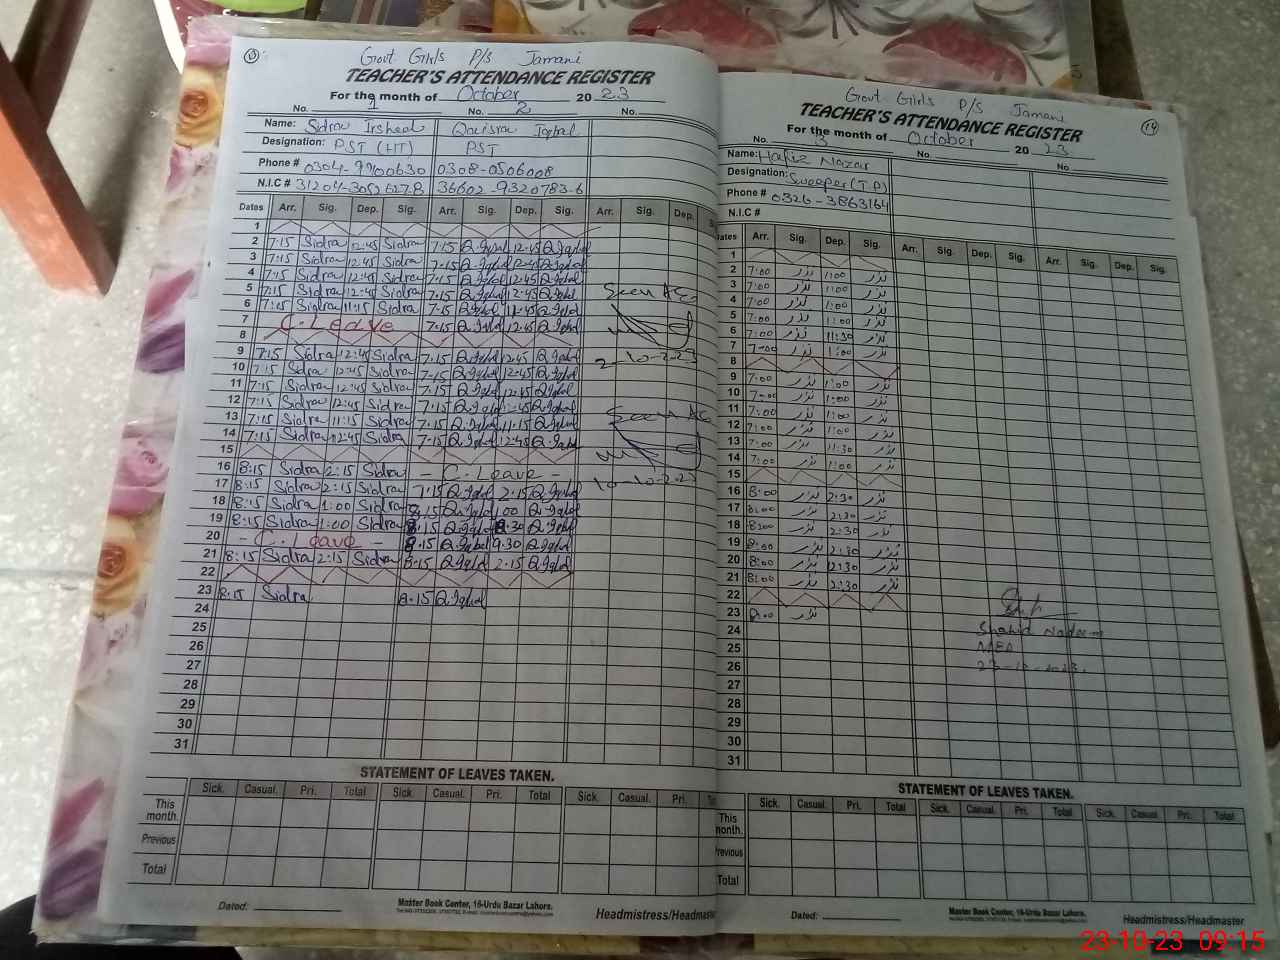 Govt Girls P/s Jamani
TEACHER'S ATTENDANCE REGISTER
For the month of October 20 23
No. 1 No. 2 No.
Name: Sidra Irshad
Designation: PST (HT) PST
Phone # 0304-9900630 0308-0506008
N.I.C # 36602-9320783-6
Dates Arr. Sig. Dep. Sig. Arr. Sig. Dep. Sig. Arr. Sig. Dep.
1
2 7:15 Sidra 12:45 Sidra 7:15 Q.Iqbal 12:45 Q.Iqbal
3 7:15 Sidra 12:45 Sidra 7:15 Q.Iqbal 12:45 Q.Iqbal
4 7:15 Sidra 12:45 Sidra 7:15 Q.Iqbal 12:45 Q.Iqbal
5 7:15 Sidra 12:45 Sidra 7:15 Q.Iqbal 12:45 Q.Iqbal
6 7:15 Sidra 11:15 Sidra 7:15 Q.Iqbal 11:15 Q.Iqbal
7 C.Leave 7:15 Q.Iqbal 12:45 Q.Iqbal
8
9 7:15 Sidra 12:45 Sidra 7:15 Q.Iqbal 12:45 Q.Iqbal
10 7:15 Sidra 12:45 Sidra 7:15 Q.Iqbal 12:45 Q.Iqbal
11 7:15 Sidra 12:45 Sidra 7:15 Q.Iqbal 12:45 Q.Iqbal
12 7:15 Sidra 12:45 Sidra 7:15 Q.Iqbal 12:45 Q.Iqbal
13 7:15 Sidra 11:15 Sidra 7:15 Q.Iqbal 11:15 Q.Iqbal
14 7:15 Sidra 12:45 Sidra 7:15 Q.Iqbal 12:45 Q.Iqbal
15
16 8:15 Sidra 2:15 Sidra - C.Leave -
17 8:15 Sidra 2:15 Sidra Q.Iqbal 2:15 Q.Iqbal
18 8:15 Sidra 1:00 Sidra 8:15 Q.Iqbal 1:00 Q.Iqbal
19 8:15 Sidra 1:00 Sidra 8:15 Q.Iqbal Q.Iqbal
20 - C.Leave - 8:15 Q.Iqbal 9:30 Q.Iqbal
21 8:15 Sidra 2:15 Sidra 8:15 Q.Iqbal 2:15 Q.Iqbal
22
23 8:15 Sidra 8:15 Q.Iqbal
24
25
26
27
28
29
30
31
Seen
2-10-2023
Seen
10-10-2023
STATEMENT OF LEAVES TAKEN.
Sick. Casual. Pri. Total Sick. Casual. Pri. Total Sick. Casual. Pri.
This month.
Previous
Total
Dated:
Master Book Center, 16-Urdu Bazar Lahore.
Headmistress/Headmaster
14
Govt Girls P/S Jamani
TEACHER'S ATTENDANCE REGISTER
For the month of October 20 23
No. 3 No. No.
Name: Hafiz Nazar
Designation: Sweeper (T.P)
Phone # 0326-3863164
N.I.C #
Dates Arr. Sig. Dep. Sig. Arr. Sig. Dep. Sig. Arr. Sig. Dep. Sig.
1
2 7:00 نذر 1:00 نذر
3 7:00 نذر 1:00 نذر
4 7:00 نذر 1:00 نذر
5 7:00 نذر 1:00 نذر
6 7:00 نذر 11:30 نذر
7 7:00 نذر 1:00 نذر
8
9 7:00 نذر 1:00 نذر
10 7:00 نذر 1:00 نذر
11 7:00 نذر 1:00 نذر
12 7:00 نذر 1:00 نذر
13 7:00 نذر 11:30 نذر
14 7:00 نذر 1:00 نذر
15
16 8:00 نذر 2:30 نذر
17 8:00 نذر 2:30 نذر
18 8:00 نذر 2:30 نذر
19 8:00 نذر 2:30 نذر
20 8:00 نذر 12:30 نذر
21 8:00 نذر 2:30 نذر
22
23 8:00 نذر
24
25
26
27
28
29
30
31
Shahid Nadeem
MEA
23-10-2023.
STATEMENT OF LEAVES TAKEN.
Sick. Casual. Pri. Total Sick. Casual. Pri. Total Sick. Casual. Pri. Total
This month.
Previous
Total
Dated:
Master Book Center, 16-Urdu Bazar Lahore.
Headmistress/Headmaster
23-10-23 09:15